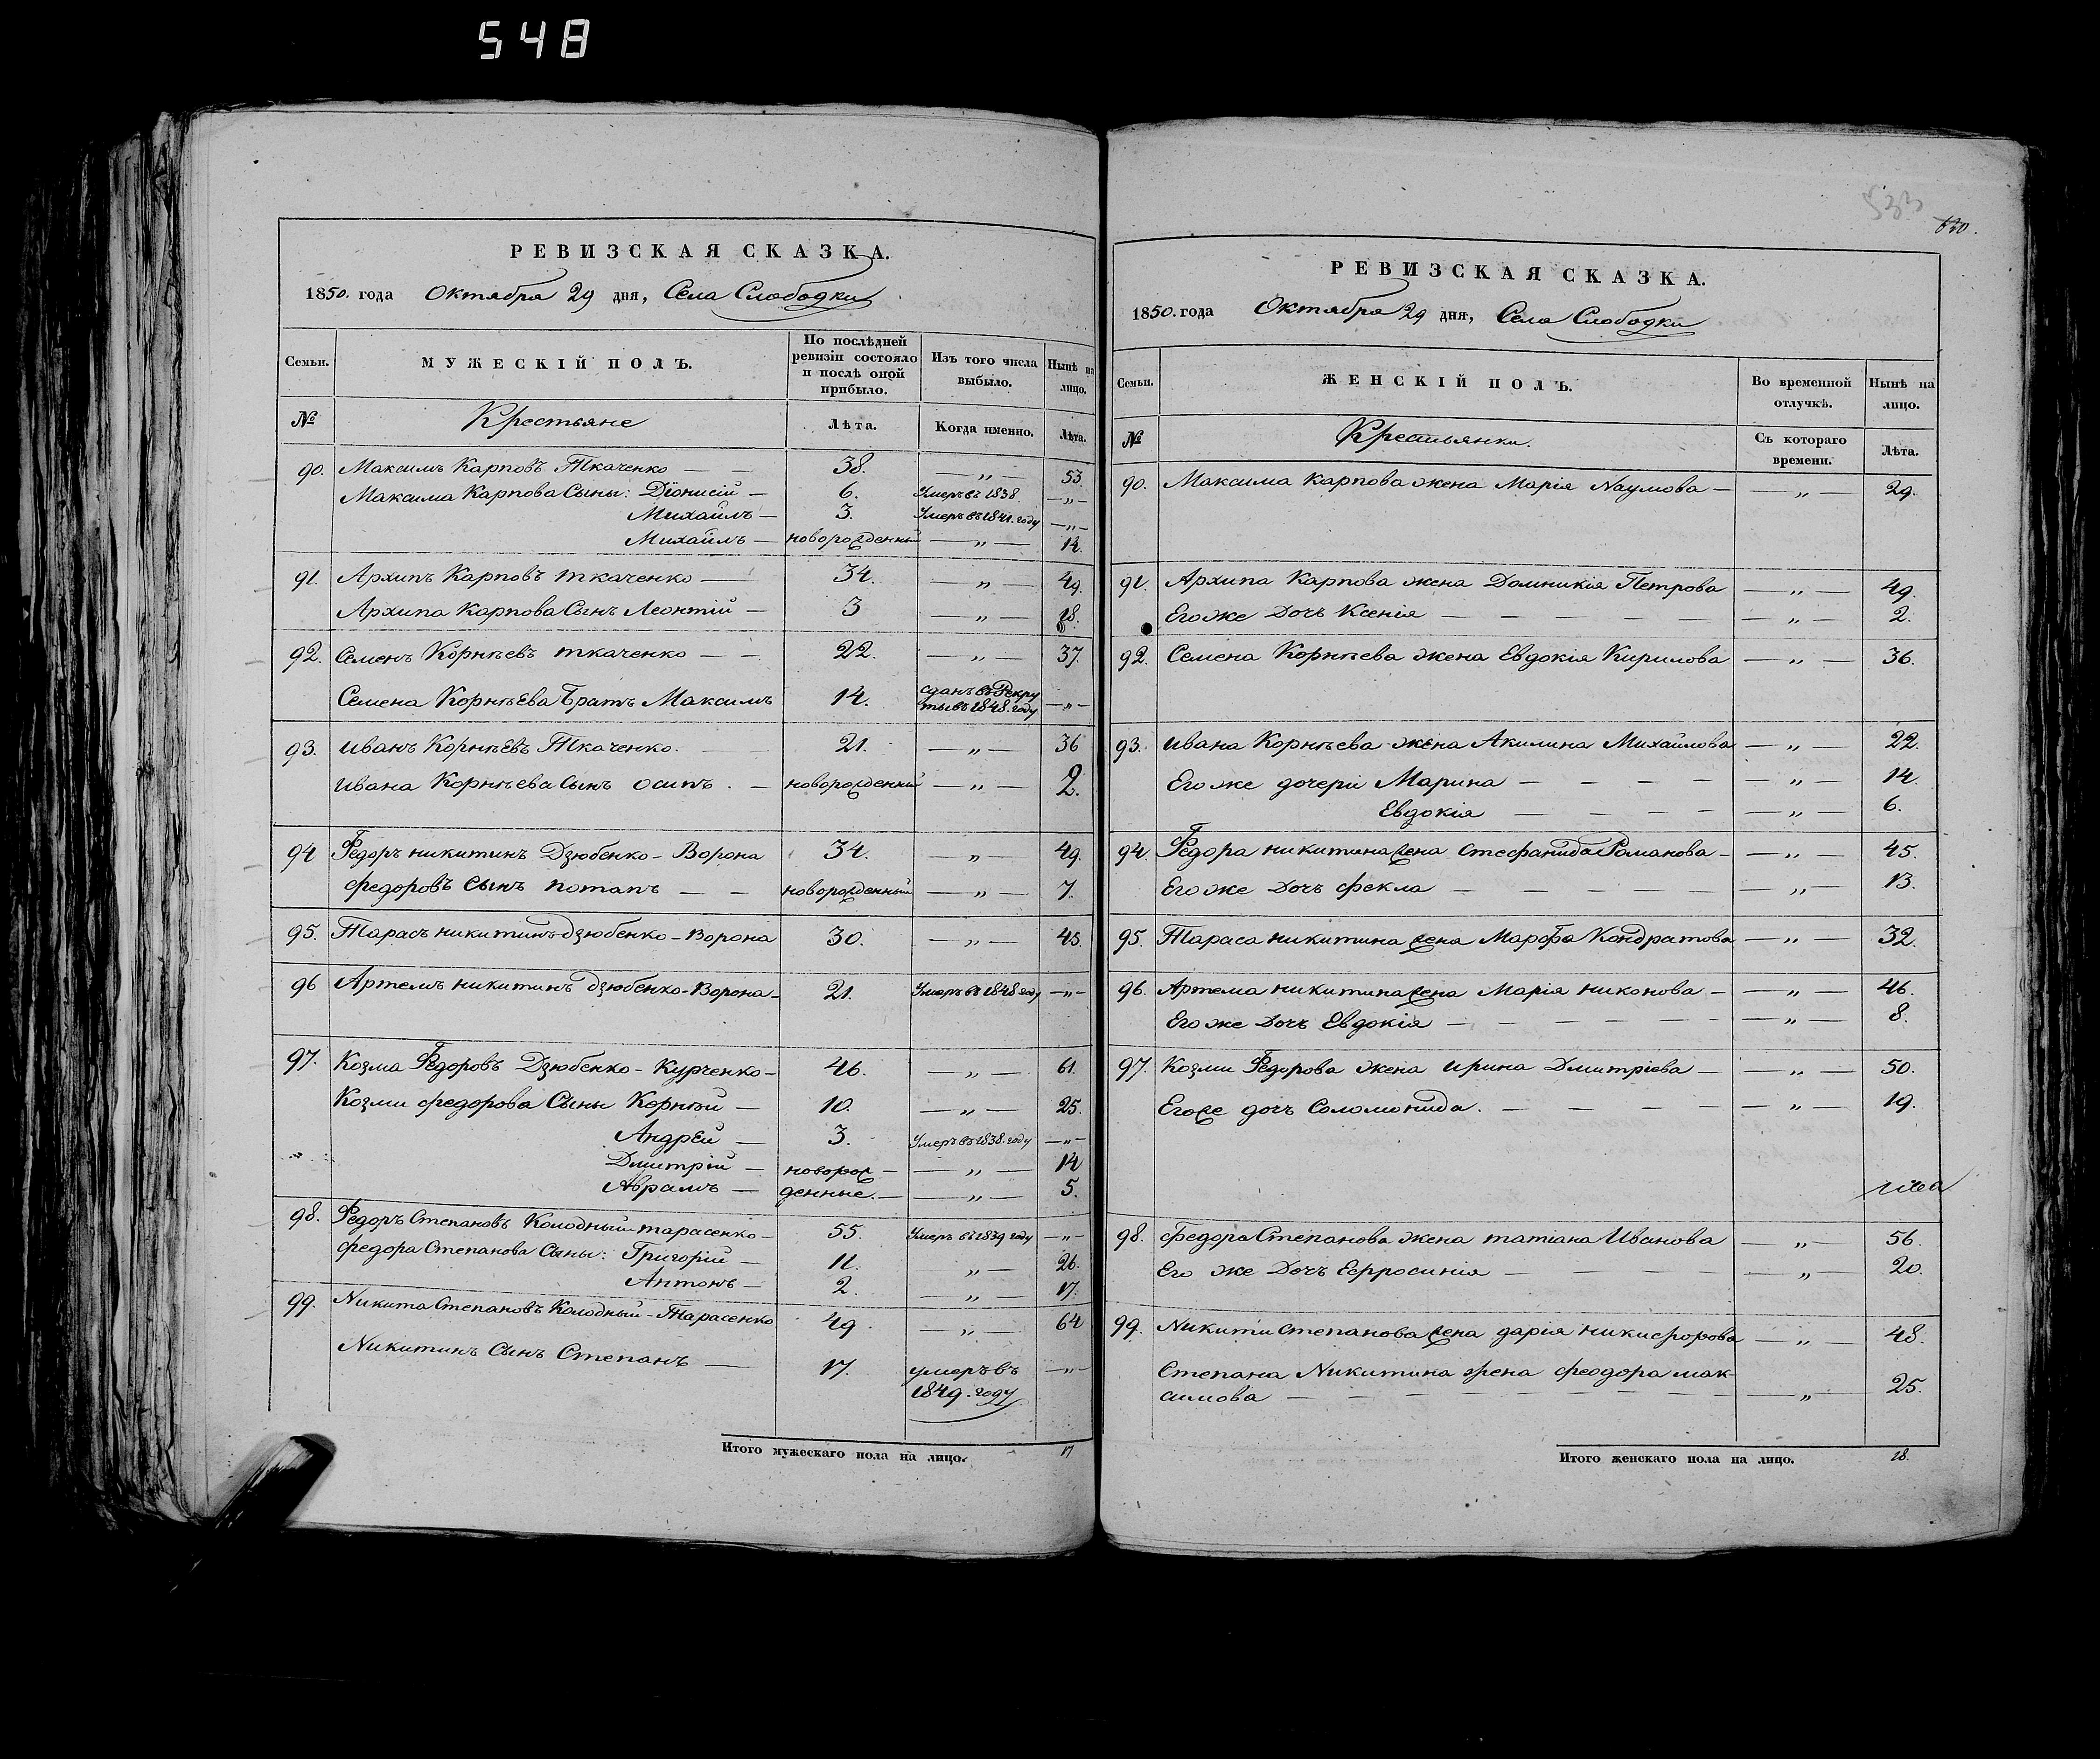 548
РЕВИЗСКАЯ СКАЗКА.
1850. года Октября 29 дня, Села Слободки
Семьи. МУЖЕСКІЙ ПОЛЪ. По послѣдней ревизіи состояло и послѣ оной прибыло. Изъ того числа выбыло. Нынѣ на лицо.
№ Крестьяне Лѣта. Когда именно. Лѣта.
90. Максимъ Карповъ Ткаченко — — 38. — „ — 53.
Максима Карпова Сыны: Діонисій — 6. Умеръ въ 1838. — „ —
Михайлъ — 3. Умеръ въ 1841. году — „ —
Михайлъ — новорожденный — „ — 14.
91. Архипъ Карповъ ткаченко — 34. — „ — 49.
Архипа Карпова Сынъ Леонтій — 3 — „ — 18.
92. Семенъ Корнѣевъ ткаченко — — 22. — „ — 37.
Семена Корнѣева Братъ Максимъ 14. сданъ въ Рекру
ты въ 1848. году — „ —
93. Иванъ Корнѣевъ Ткаченко. — 21. — „ — 36
Ивана Корнѣева Сынъ Осипъ. — новорожденный — „ — 2.
94 Федоръ никитинъ Дзюбенко - Ворона 34. — „ — 49.
Федоровъ Сынъ потапъ — — новорожденный — „ — 7.
95. Тарасъ никитинъ дзюбенко - Ворона 30. — „ — 45.
96 Артемъ никитинъ дзюбенко - Ворона - 21. Умеръ въ 1848 году — „ —
97. Козма Федоровъ Дзюбенко - Курченко - 46. — „ — 61.
Козми Федорова Сыны Корнѣй — 10. — „ — 25.
Андрей — 3. Умеръ въ 1838. году — „ —
Дмитрій — новорож — — „ — 14
Аврамъ — денные. — — „ — 5.
98. Федоръ Степановъ Колодный тарасенко - 55. Умеръ въ 1839 году — „ —
Федора Степанова Сыны: Григорій — 11. „ — 26.
Антонъ — 2. — „ — 17.
99. Никита Степановъ Колодный - Тарасенко 49 — „ — 64
Никитинъ Сынъ Степанъ — 17. умеръ въ — „ —
1849. году
Итого мужескаго пола на лицо. 17
533
РЕВИЗСКАЯ СКАЗКА.
1850. года Октября 29 дня, Села Слободки
Семьи. ЖЕНСКІЙ ПОЛЪ. Во временной отлучкѣ. Нынѣ на лицо.
№ Крестьянки. Съ котораго времени. Лѣта.
90. Максима Карпова жена Марія Наумова — — „ — 29.
91. Архипа Карпова жена Домникія Петрова — „ — 49.
Его же Дочь Ксенія — — — — — — „ — 2.
92. Семена Корнѣева жена Евдокія Кирилова — „ — 36.
93. Ивана Корнѣева жена Акилина Михайлова — „ — 22.
Его же дочери Марина — — — — — „ — 14.
Евдокія — — — — — „ — 6.
94. Федора никитина жена Стефанида Романова — — „ — 45.
Его же Дочь Фекла — — — — — — „ — 13.
95. Тараса никитина жена Марфа Кондратова — „ — 32.
96. Артема никитина жена Марія никонова — — „ — 46.
Его же Дочь Евдокія — — — — — — „ — 8.
97. Козми Федорова жена ирина Дмитріева — — „ — 50.
Его же дочь Соломонида. — — — — — „ — 19.
98. Федора Степанова жена татіана Иванова — „ — 56.
Его же Дочь Ефросинія — — — — — „ — 20.
99. Никити Степанова жена дарія никифорова — „ — 48.
Степана Никитина жена феодора мак
симова — — — — — — — „ — 25.
Итого женскаго пола на лицо. 18.